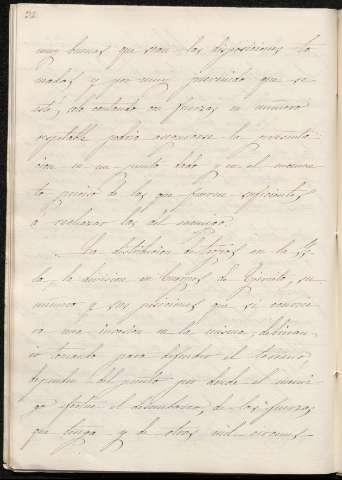 22
muy buenas que sean las disposiciones to
madas y por muy prevenido que se
esté, solo contando con fuerzas en número
respetable podría asegurarse la presenta
cion en un punto dado y en el momen
to preciso de las que fuesen suficientes
á rechazar las del enemigo.
La distribucion de tropas en la Is
la, la division en Cuerpos de Ejército, su
numero y las posiciones que si
ra una invasion en la misma,
tomando para defender el terreno,
depende del punto por donde el enemi
go efectue el desembarco, de las fuerzas
que tenga y de otras mil circuns-